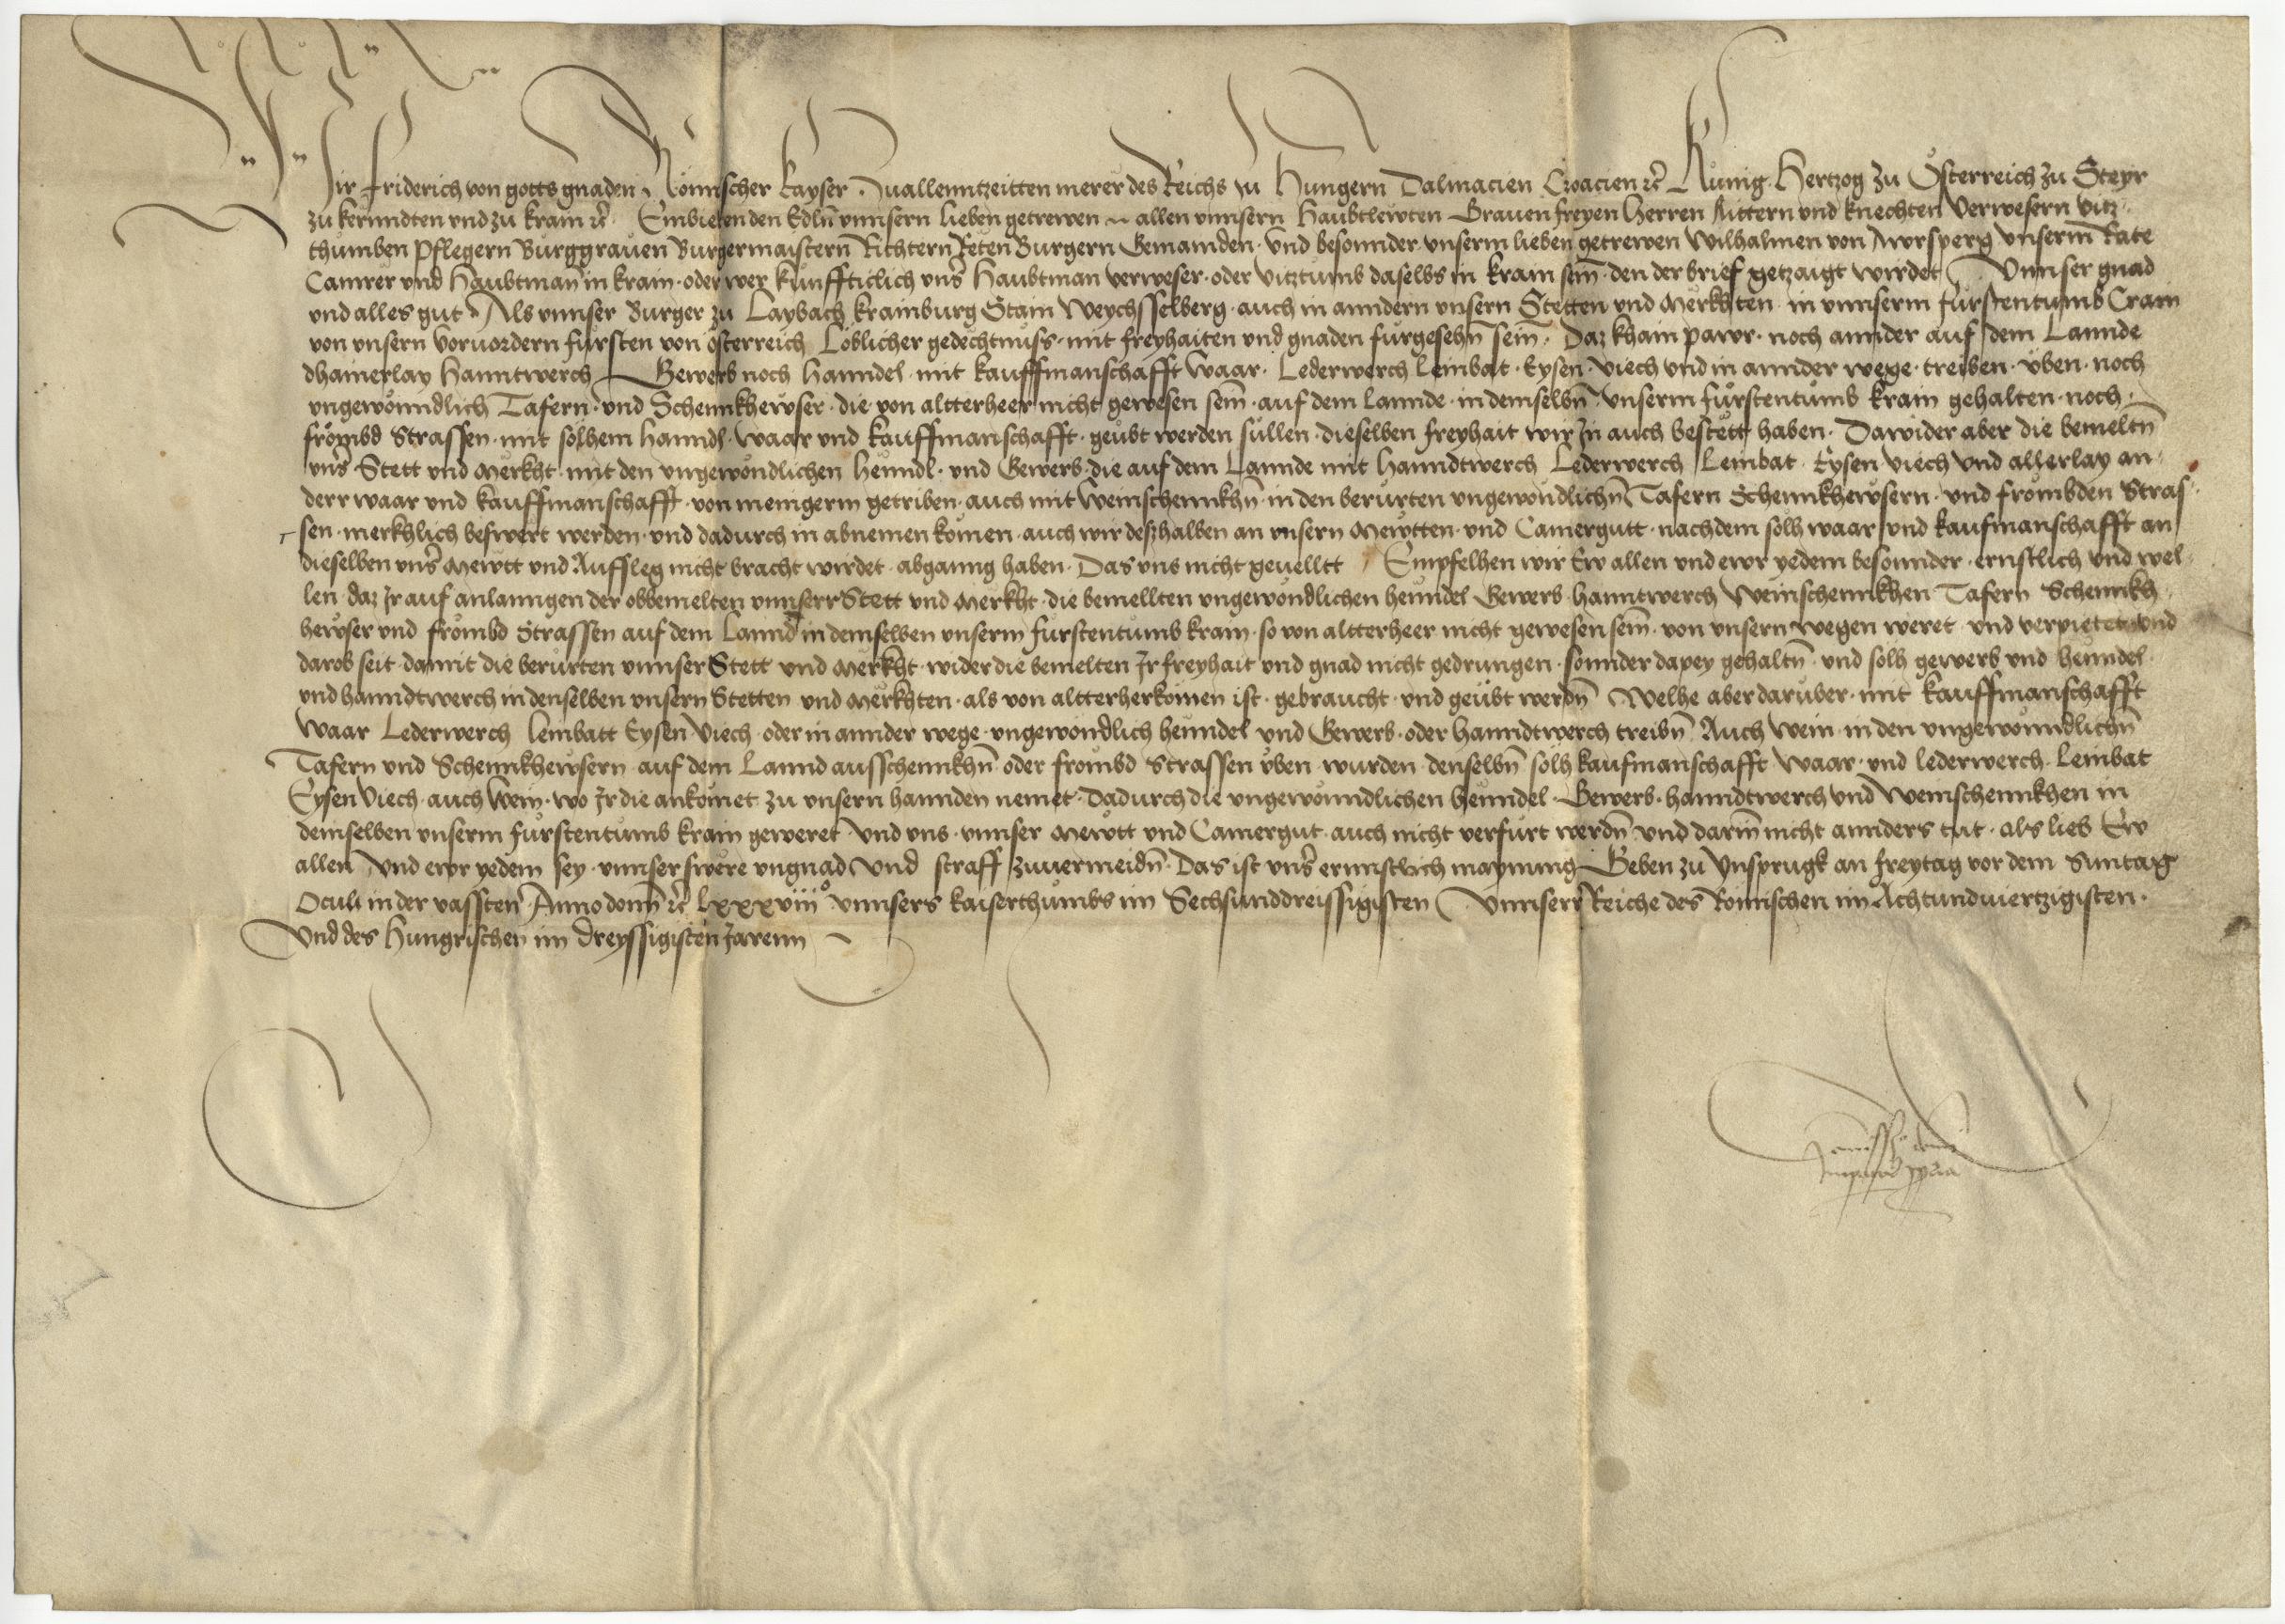 Wir Friderich von gotts gnaden Römischer Kayser zuallenntzeitten merer des Reichs zu Hungern Dalmacien Croacien ꝛc̃ Kunig Hertzog zu Österreich zu Steyr
zu kernndten vnd zu krain ꝛc̃ Embieten den Edln̄ vnnsern lieben getrewen allen vnnsern Haubtlewten Grauen freyen Herren Rittern vnd knechten Verwesern vitz
thumben Pflegern Burggrauen Burgermaistern Richtern Reten Burgern Gemainden · vnd besonnder vnserm lieben getrewen Wilhalmen von Awrsperg vnserm̄ Rate
Camrer vnd Haubtman in krain · oder wer kunffticlich vns̃ Haubtman verweser · oder vitztumb daselbs in krain sein̄ · den der brief getzaigt wirdet Vnnser gnad
vnd alles gut Als vnnser Burger zu Laybach krainburg Stain Weychsselberg · auch in anndern vnsern Stetten vnd Merkhten in vnnserm fürstentumb Crain
von vnsern Voruordern fursten von österreich Löblicher gedechtnuss · mit freyhaiten vnd gnaden furgesehn̄ sein̄ · Daz khain pawr · noch annder auf dem Lannde
dhainerlay Hanntwerch Gewerb noch Hanndel · mit kauffmanschafft Waar · Lederwerch Leinbat · Eysen · viech vnd in annder wege · treiben · vben · noch
vngewonndlich Tafern · vnd Schennkhewser · die von altterheer nicht gewesen sein̄ · auf dem Lannde · in demselbn̄ vnserm furstentumb krain gehalten · noch ·
frömbd Strassen · mit solhem hanndl · waar vnd kauffmanschafft · geubt werden sullen · dieselben freyhait wir In auch bestett haben · Dawider aber die bemeltn̄
vns̃ Stett vnd Merkht · mit den vngewondlichen Henndl · vnd Gewerb · die auf dem Lannde mit Hanndtwerch Lederwerch Leinbat Eysen viech vnd allerlay an
derr waar vnd kauffmanschafft · von menigerm getriben · auch mit Weinschennkhn̄ · in den berurten vngewondlichn̄ Tafern Schennkhewsern · vnd frombden Stras
sen · merkhlich beswert werden · vnd dadurch in abnemen komen · auch wir deszhalben an vnsern Mewtten · vnd Camergutt · nachdem solh waar vnd kaufmanschafft an
dieselben vns̃ Mewtt vnd Aufsleg nicht bracht wirdet · abganng haben · Das vns nicht geuelltt Empfelhen wir Ew allen vnd ewr yedem besonnder · ernstlich vnd wel
len · daz Ir auf anlanngen der obbemelten vnnserr Stett vnd Merkht · die bemellten vngewondlichen henndel Gewerb · hanntwerch Weinschennkhen Tafern Schennkh
hewser vnd frombd Strassen auf dem Lannd in demselben vnserm furstentumb krain · so von altterheer nicht gewesen sein̄ · von vnsern wegen weret · vnd verpietet vnd
darob seit · damit die berurten vnnser Stett vnd Merkht · wider die bemelten Ir freyhait vnd gnad nicht gedrungen · sonnder dapey gehaltn̄ · vnd solh gewerb vnd henndel ·
vnd hanndtwerch in denselben vnsern Stetten vnd Merkhten · als von altterherkomen ist · gebraucht · vnd geubt werdn̄ Welhe aber daruber · mit kauffmanschafft
Waar Lederwerch Leinbatt Eysen Viech · oder in annder wege · vngewondlich henndel vnd Gewerb · oder hanndtwerch treibn̄ Auch Wein · in den vngewonndlichn̄
Tafern vnd Schennkhewsern · auf dem Lannd ausschennkhn̄ oder frombd Strassen vben wurden · denselbn̄ solh kaufmanschafft Waar · vnd lederwerch · Leinbat
Eysen Viech · auch Wein · wo Ir die ankomet zu vnsern hannden nemet · Dadurch die vngewonndlichen henndel · Gewerb · hanndtwerch vnd Weinschennkhen in
demselben vnserm furstentumb krain geweret · vnd vns · vnnser Mewtt vnd Camergut · auch nicht verfurt werdn̄ vnd darin̄ nicht annders tut · als lieb Ew
allen vnd ewr yedem sey · vnnser swere vngnad vnd straff zuuermeidn̄ · Das ist vns̃ ernnstlich maynung Geben zu Ynsprugk an freytag vor dem Suntag
Oculi in der vassten Anno domī ꝛc̃ lxxxviiiᵒ vnnsers kaiserthumbs im Sechsunddreissigisten Vnnserr Reiche des Römischen im Achtundviertzigisten ·
Vnd des Hungrischen im Dreyssigisten Jarenn